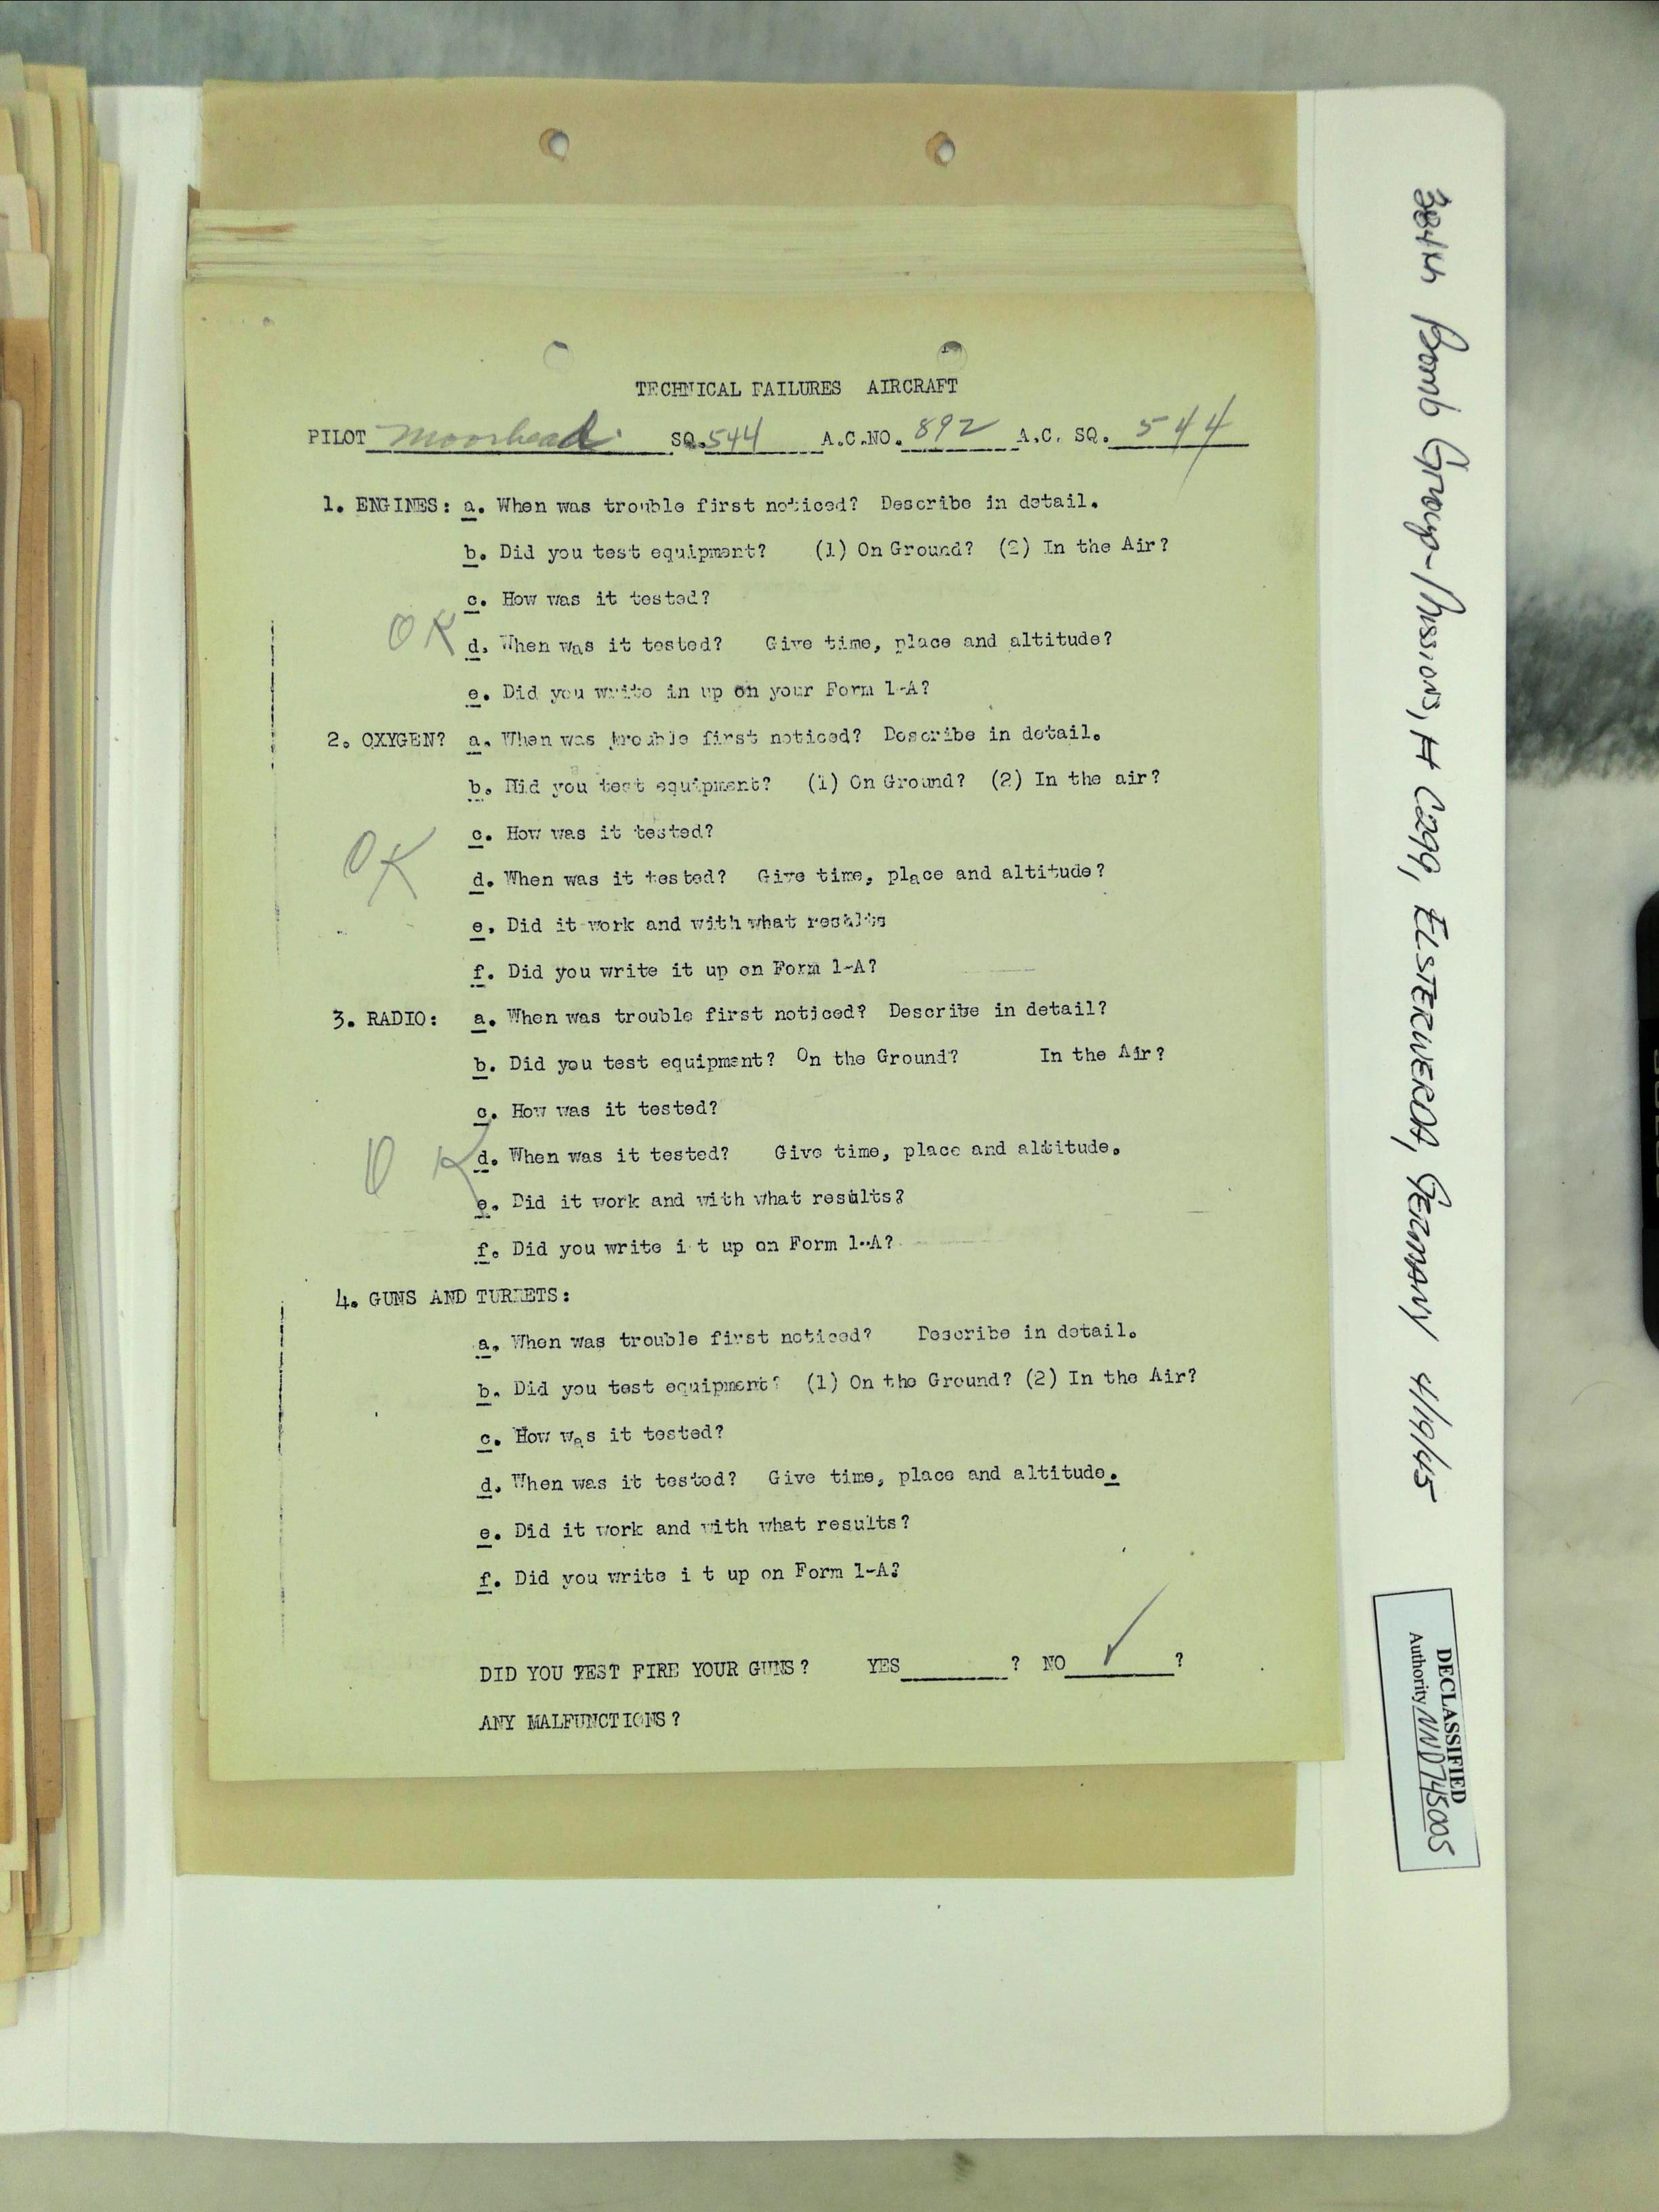 TECHNICAL FAILURES AIRCRAFT
PILOT Moorhead SQ. 544 A.C.NO. 892 A.C. SQ. 544
1. ENGINES: a. When was trouble first noticed? Describe in detail.
b. Did you test equipment? (1) On Ground? (2) In the Air?
c. How was it tested?
OK d. When was it tested? Give time, place and altitude?
e. Did you write in up on your Form 1-A?
2. OXYGEN? a. When was trouble first noticed? Describe in detail.
b. Did you test equipment? (1) On Ground? (2) In the air?
c. How was it tested?
OK d. When was it tested? Give time, place and altitude?
e. Did it work and with what results
f. Did you write it up on Form 1-A?
3. RADIO: a. When was trouble first noticed? Describe in detail?
b. Did you test equipment? On the Ground? In the Air?
c. How was it tested?
OK d. When was it tested? Give time, place and altitude.
e. Did it work and with what results?
f. Did you write i t up on Form 1-A?
4. GUNS AND TURRETS:
a. When was trouble first noticed? Describe in detail.
b. Did you test equipment? (1) On the Ground? (2) In the Air?
c. How was it tested?
d. When was it tested? Give time, place and altitude.
e. Did it work and with what results?
f. Did you write i t up on Form 1-A?
DID YOU TEST FIRE YOUR GUNS? YES ? NO ✓ ?
ANY MALFUNCTIONS?
384th Bomb Group-Mission, # 299, ELSTERWERDA, GERMANY 4/19/45
DECLASSIFIED
Authority NND745005